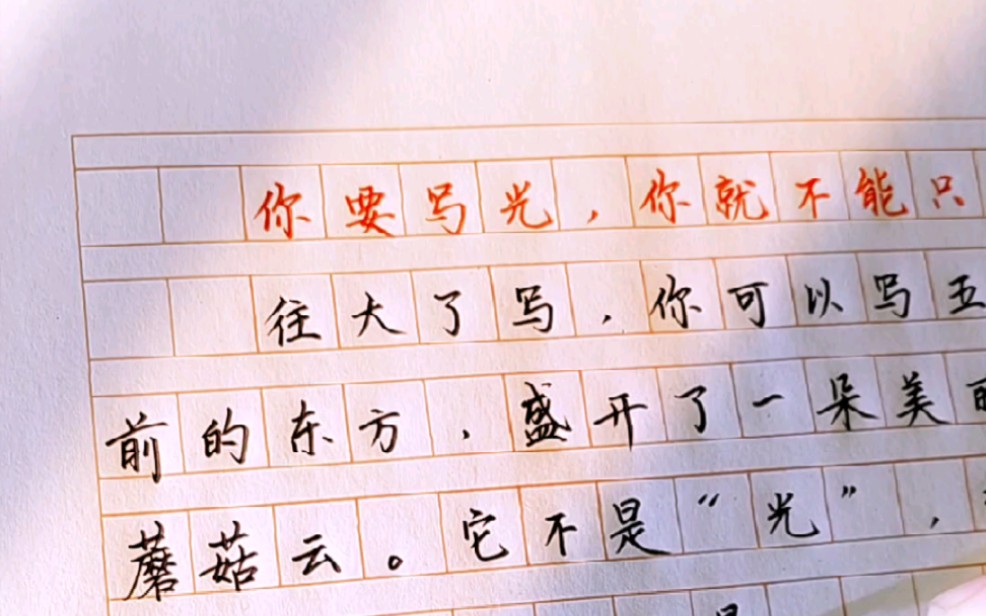 你要写光，你就不能只
往大了写，你可以写五
前的东方，盛开了一朵美
蘑菇云。它不是“光”，